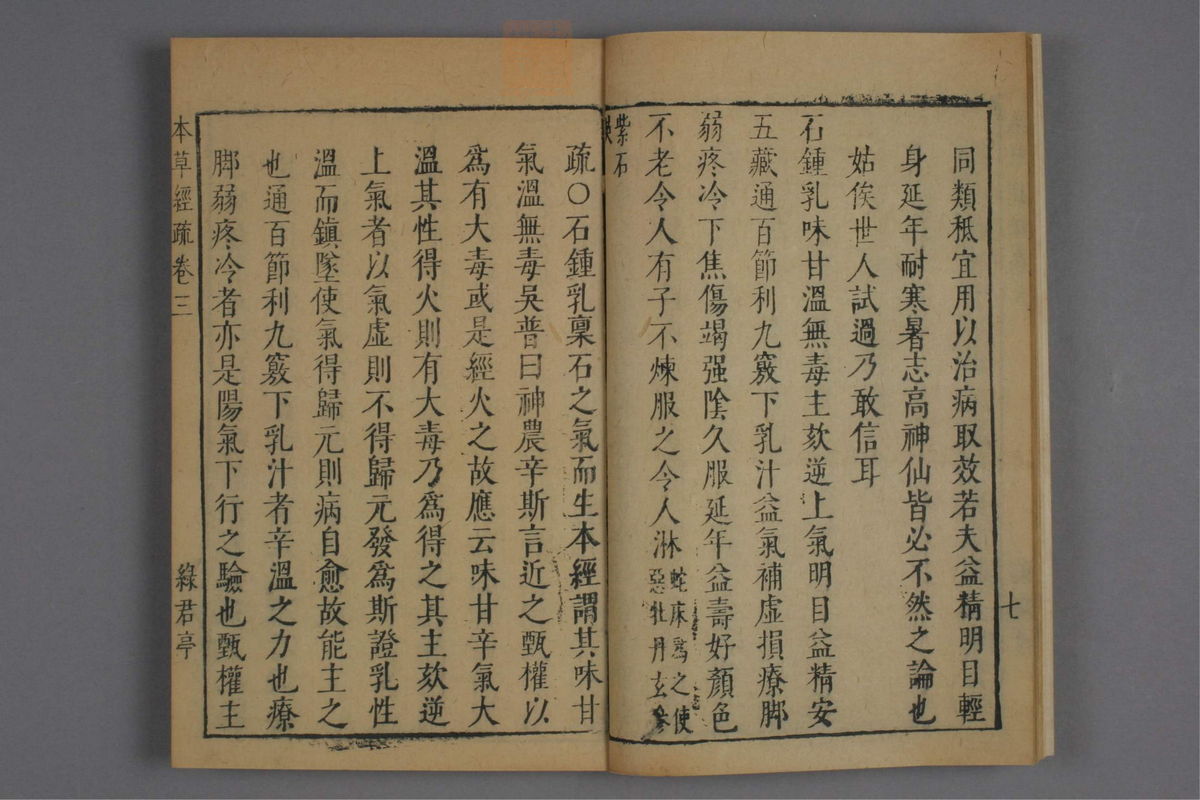 同類秖宜用以治病取效若夫益精明目輕
身延年耐寒暑志高神仙皆必不然之論也
姑俟世人試過乃敢信耳
石鍾乳味甘溫無毒主欬逆上氣明目益精安
五藏通百節利九竅下乳汁益氣補虛損療脚
弱疼冷下焦傷竭强陰久服延年益壽好顏色
不老令人有子不煉服之令人淋蛇床爲之使
惡牡丹玄參
紫石
疏○石鍾乳稟石之氣而生本經謂其味甘
氣溫無毒吳普曰神農辛斯言近之甄權以
爲有大毒或是經火之故應云味甘辛氣大
溫其性得火則有大毒乃爲得之其主欬逆
上氣者以氣虛則不得歸元發爲斯證乳性
溫而鎮墜使氣得歸元則病自愈故能主之
也通百節利九竅下乳汁者辛溫之力也療
脚弱疼冷者亦是陽氣下行之驗也甄權主
本草經疏卷三
綠君亭
七